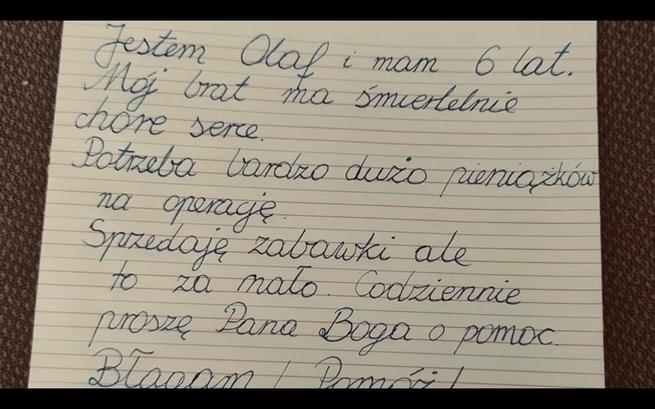 Jestem Olaf i mam 6 lat.
Mój brat ma śmiertelnie
chore serce.
Potrzeba bardzo dużo pieniążków
na operację.
Sprzedaję zabawki ale
to za mało. Codziennie
proszę Pana Boga o pomoc.
Błagam! Pomóż!